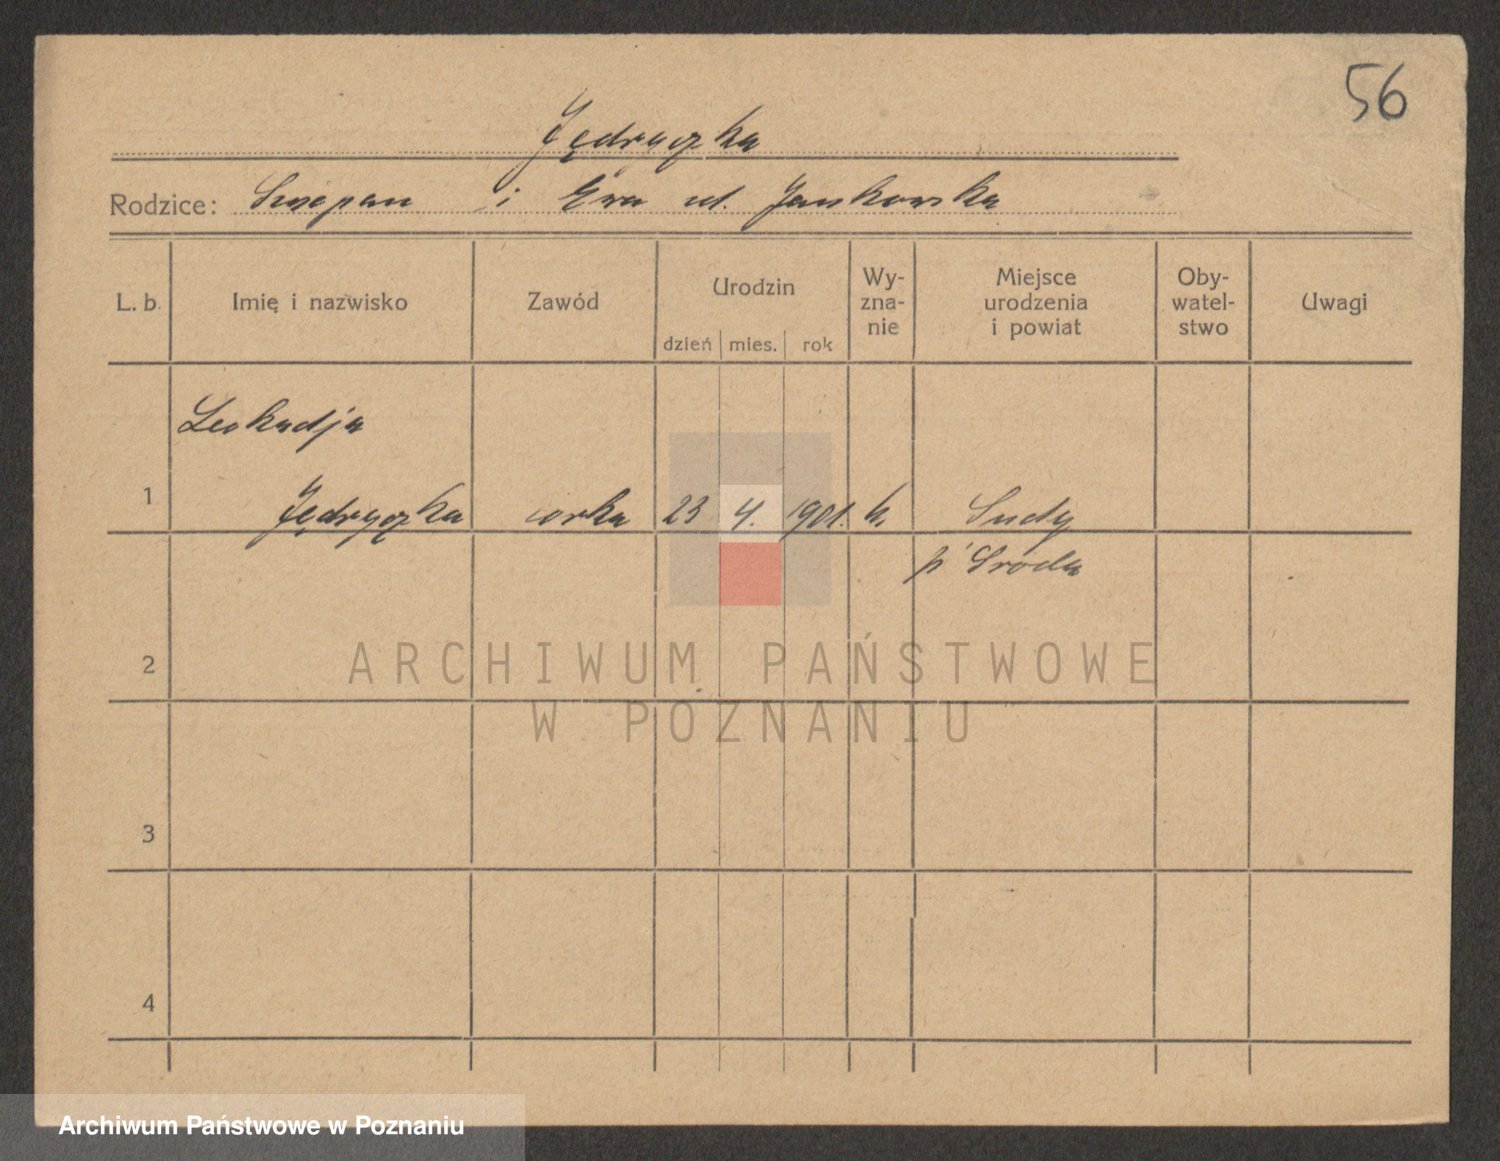 56
Jędryczka
Rodzice: Szczepan i Ewa ur. Jankowska
L. b. Imię i nazwisko Zawód Urodzin dzień mies. rok Wy-zna-nie Miejsce urodzenia i powiat Oby-watel-stwo Uwagi
Leokadja
1 Jędryczka córka 23 4. 1901. k.
p. Środa
2
ARCHIWUM PAŃSTWOWE
W POZNANIU
3
4
Archiwum Państwowe w Poznaniu